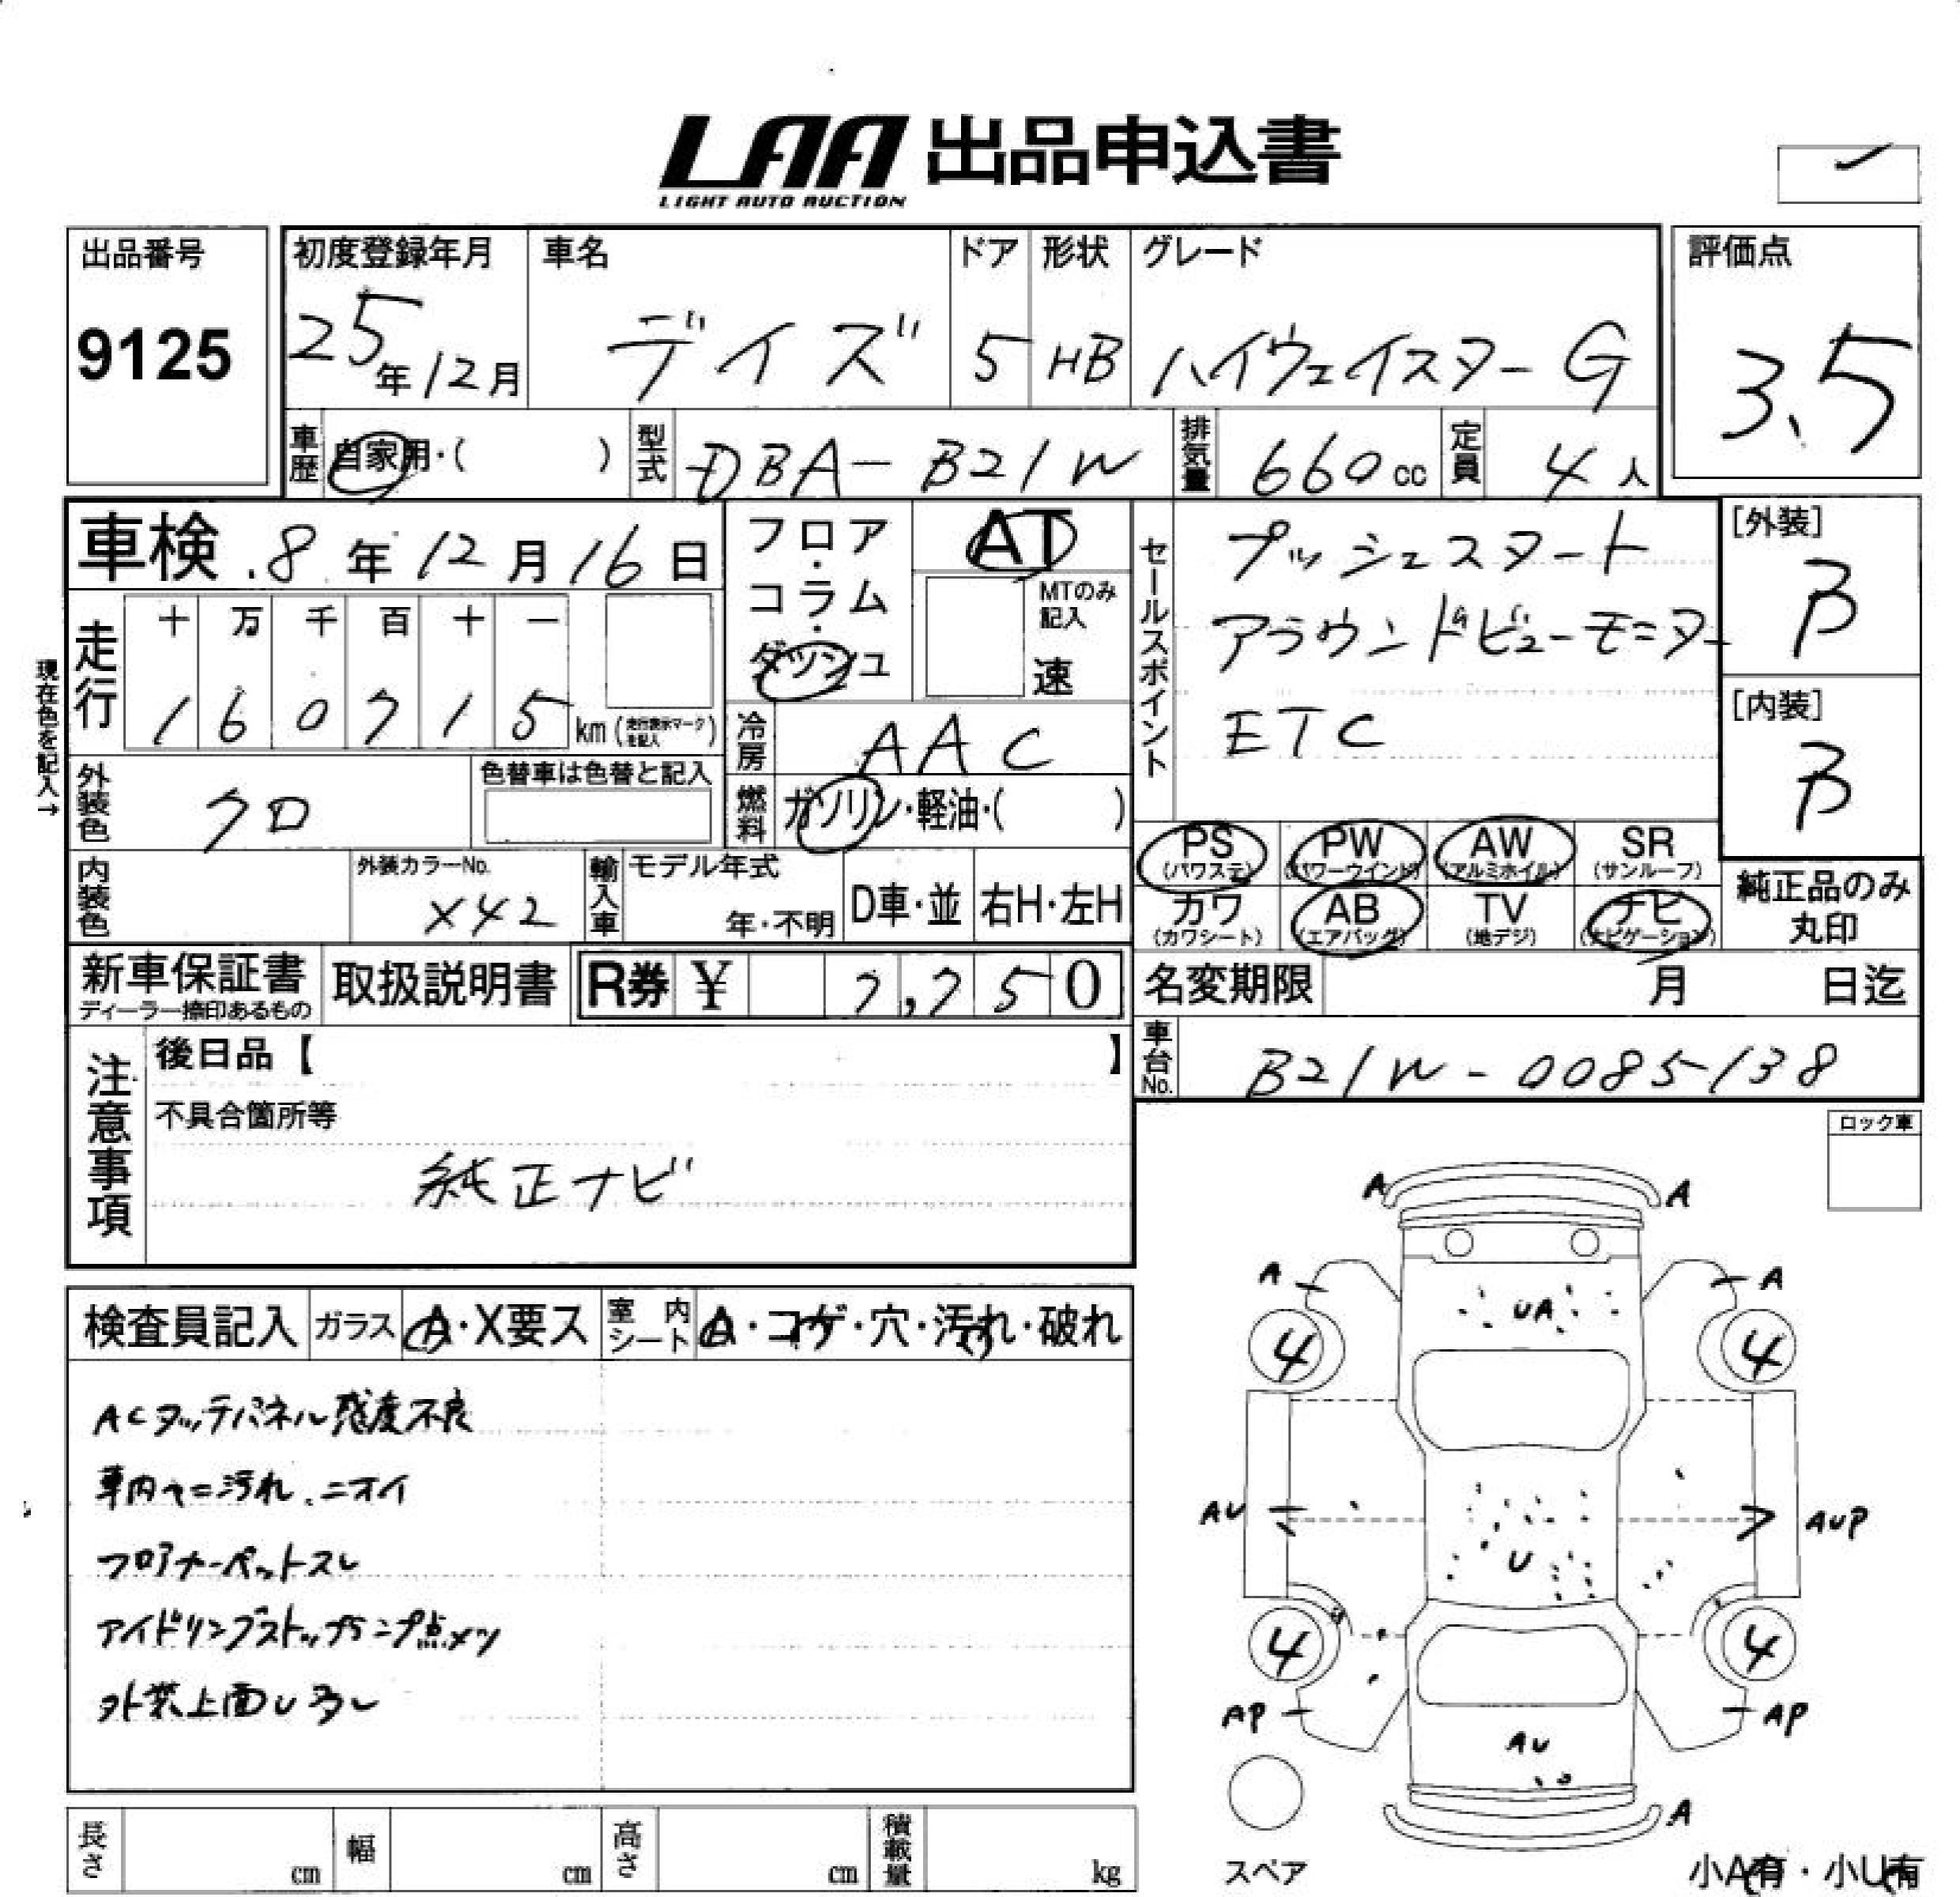 LAA 出品申込書
LIGHT AUTO AUCTION
出品番号
9125
初度登録年月
25年12月
車名
デイズ
ドア
5
形状
HB
グレード
ハイウェイスターG
評価点
3.5
車歴
自家用・( )
型式
DBA-B21W
排気量
660cc
定員
4人
車検 8年12月16日
フロア・コラム・ダッシュ
AT
MTのみ記入
速
セールスポイント
プッシュスタート
アラウンドビューモニター
ETC
[外装]
B
[内装]
B
現在色を記入→
走行
十 万 千 百 十 一
1 6 0 7 1 5 km (走行表示マークを記入)
冷房
AAC
外装色
クロ
色替車は色替と記入
燃料
ガソリン・軽油・( )
PS (パワステ)
PW (パワーウインド)
AW (アルミホイル)
SR (サンルーフ)
カワ (カワシート)
AB (エアバッグ)
TV (地デジ)
ナビ (ナビゲーション)
純正品のみ丸印
内装色
外装カラーNo.
X42
輸入車
モデル年式
年・不明
D車・並
右H・左H
新車保証書
ディーラー捺印あるもの
取扱説明書
R券 ¥ 7,750
名変期限 月 日迄
車台No.
B21W-0085138
注意事項
後日品【 】
不具合箇所等
純正ナビ
ロック車
検査員記入
ガラス
A・X要ス
室内シート
A・コゲ・穴・汚れ・破れ
ACタッチパネル感度不良
車内ヤニ汚れ、ニオイ
フロアカーペットスレ
アイドリングストップランプ点メツ
外装上面U多し
A A
A A
UA
4 4
AU AUP
U
4 4
AP AP
AU
A
スペア
小A有・小U有
長さ cm
幅 cm
高さ cm
積載量 kg